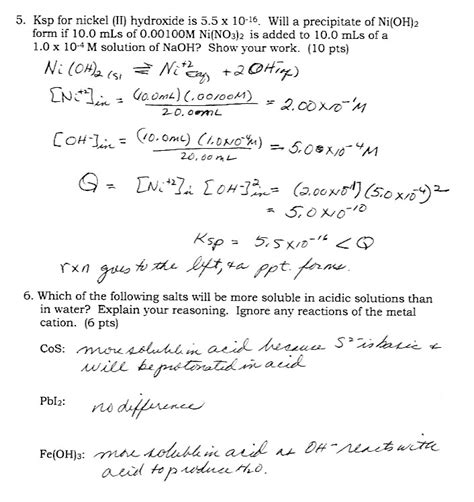 5. Ksp for nickel (II) hydroxide is 5.5 x 10⁻¹⁶. Will a precipitate of Ni(OH)₂
form if 10.0 mLs of 0.00100M Ni(NO₃)₂ is added to 10.0 mLs of a
1.0 x 10⁻⁴ M solution of NaOH? Show your work. (10 pts)
Ni(OH)₂ (s) ⇌ Ni⁺²(aq) + 2OH⁻(aq)
[Ni⁺²]in = (10.0mL)(.00100M) / 20.00mL = 2.00x10⁻¹M
[OH⁻]in = (10.0mL)(1.0x10⁻⁴M) / 20.00mL = 5.00x10⁻⁴M
Q = [Ni⁺²]in [OH⁻]²in = (2.00x10⁻¹)(5.0x10⁻⁴)²
= 5.0x10⁻¹⁰
Ksp = 5.5x10⁻¹⁶ < Q
rxn goes to the left, & a ppt. forms.
6. Which of the following salts will be more soluble in acidic solutions than
in water? Explain your reasoning. Ignore any reactions of the metal
cation. (6 pts)
CoS: more soluble in acid because S²⁻ is basic &
will be protonated in acid
PbI₂: no difference
Fe(OH)₃: more soluble in acid as OH⁻ reacts with
acid to produce H₂O.